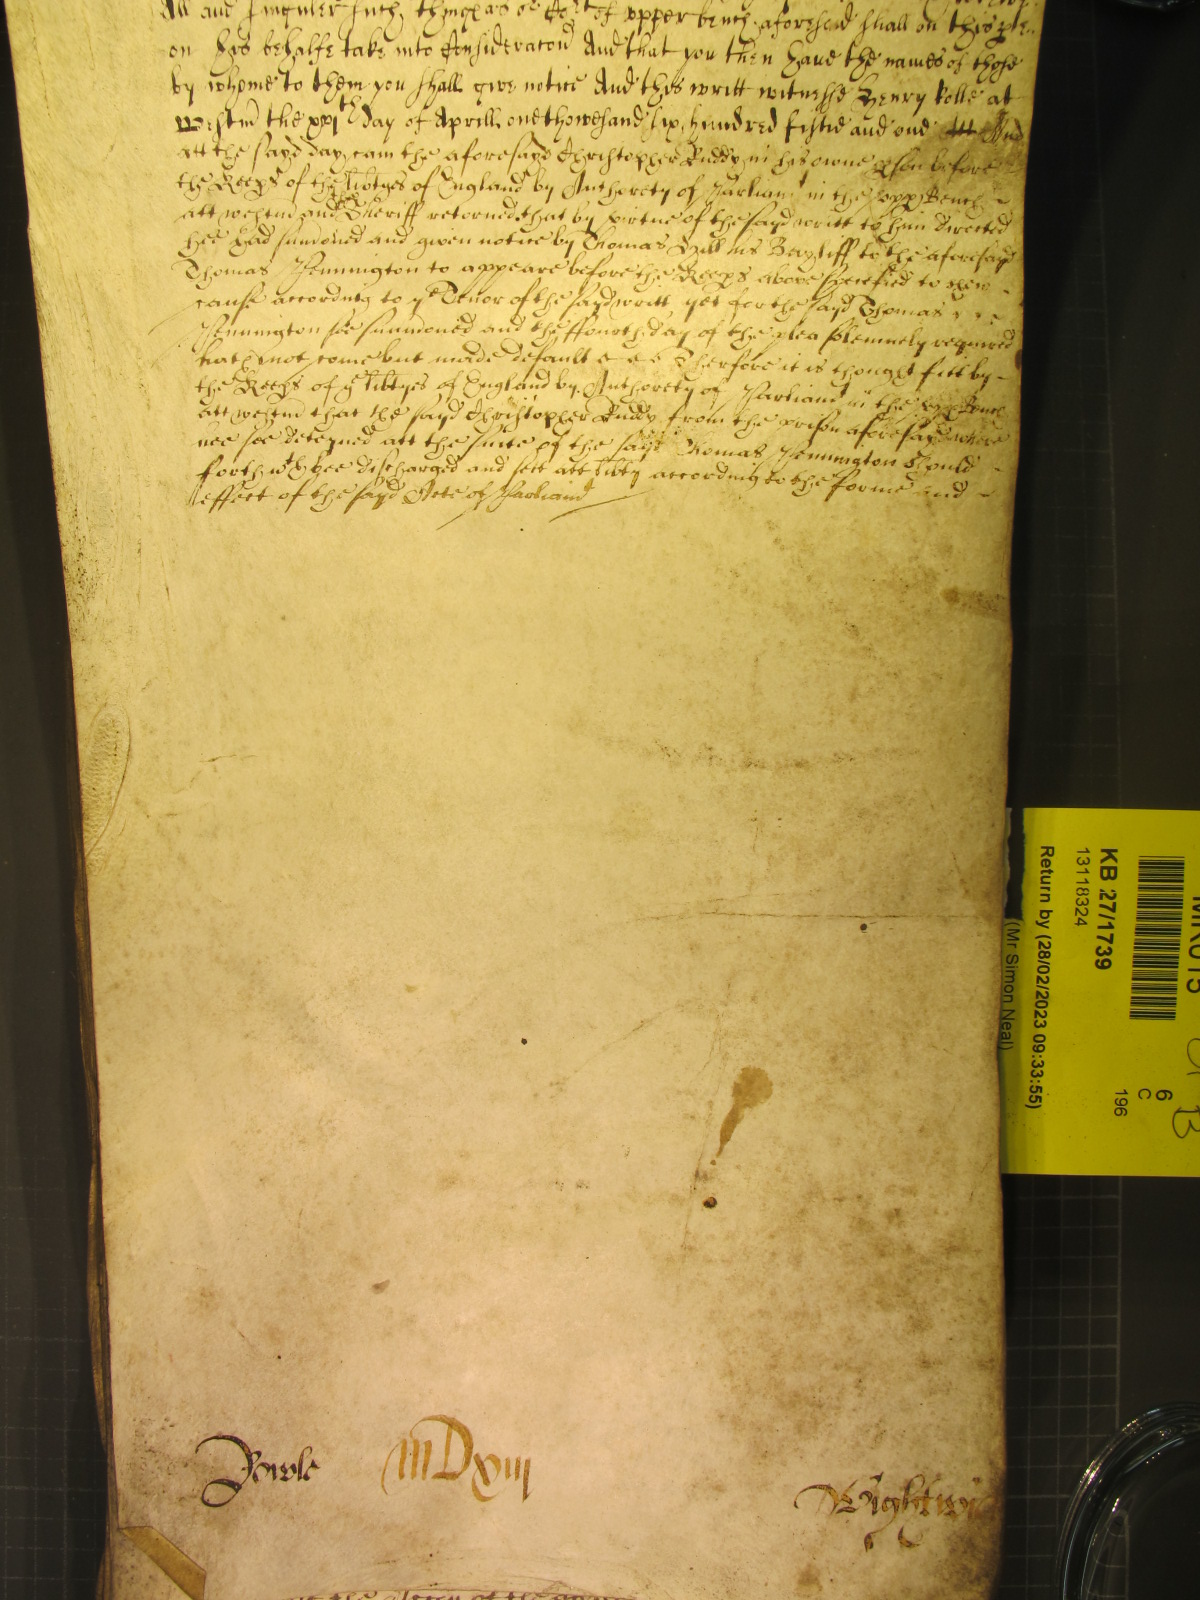 All and singuler such things as ye Cort of upper bench aforesaid shall on this
on his behalfe take into Consideracon And that you then have the names of those
by whome to them you shall give notice And this writt witnesse Henry Rolle at
Westm the xxjth day of Aprill one thowesand six hundred fiftie and one And
att the sayd day cam the aforesayd Christopher Ruddy in his owne pson before
the Keeps of the libtyes of England by Authorety of Parliamt in the upp Bench
att westm and the Sheriff retorned that by virtue of the sayd writt to him directed
hee had sumoned and given notice by Thomas Hill his Bayliff to the aforesayd
Thomas Pennington to appeare before the Keeps above specified to shew
cause according to ye Tenor of the sayd writt yet for the sayd Thomas
Pennington soe sumoned and the ffourth day of the plea solemnely required
hath not come but made default Therfore it is thought fitt by
the Keeps of ye libtyes of England by Authorety of Parliamt in the upp Bench
att westm that the sayd Christopher Ruddy from the prison aforesayd where
hee soe deteyned att the suite of the sayd Thomas Pennington should
forthwth bee discharged and sett att libty according to the forme and
effect of the sayd Acte of Parliamt
Rowle MDxiij
Wightwi
KB 27/1739
13118324
Return by (28/02/2023 09:33:55)
(Mr Simon Neal)
6
C
196